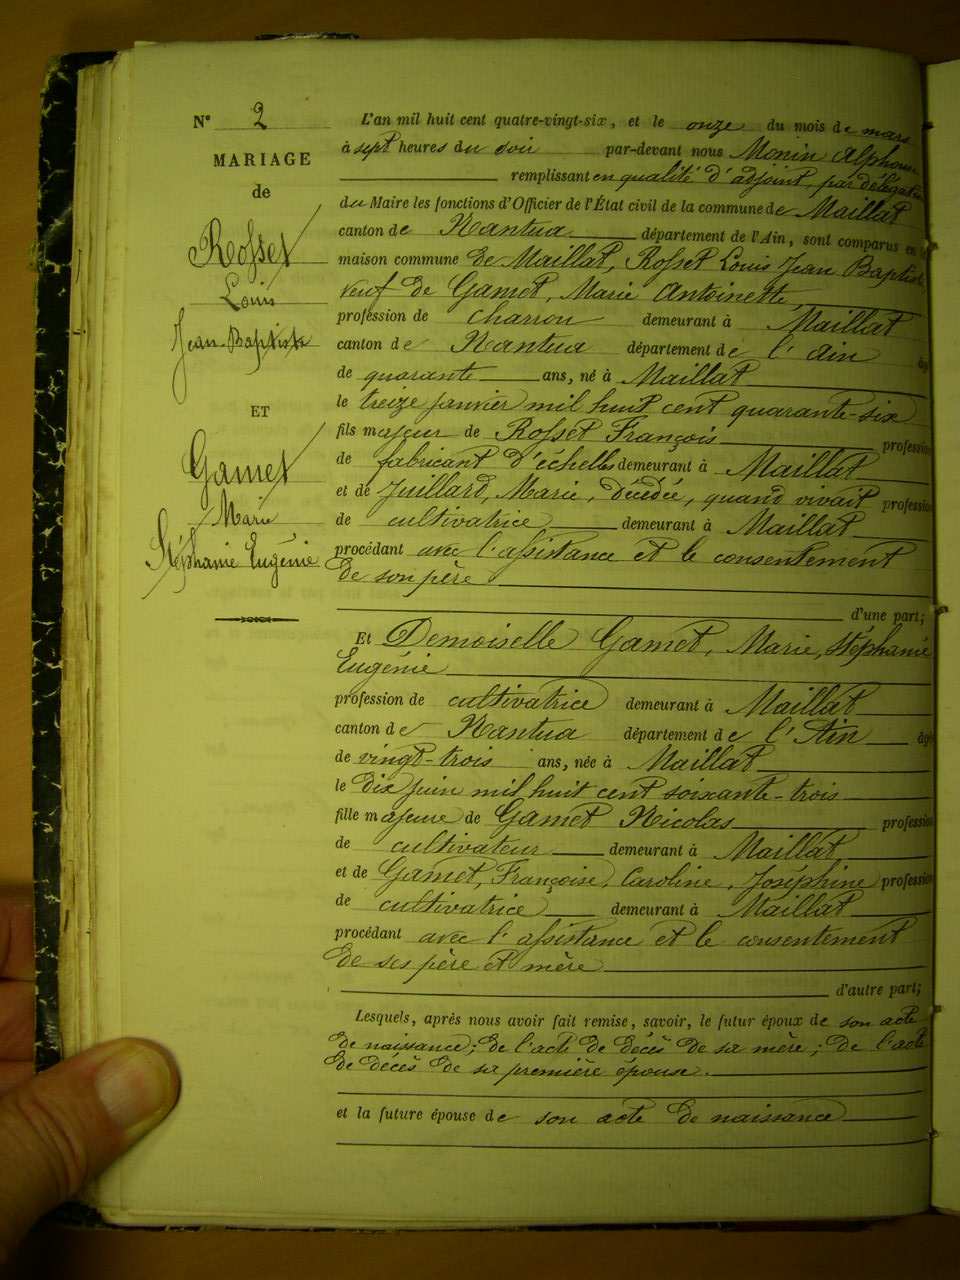 N° 2
MARIAGE
de
Rosset
Louis
Jean-Baptiste
ET
Gamet
Marie
Stéphanie Eugénie
L'an mil huit cent quatre-vingt-six, et le onze du mois de mars
à sept heures du soir par-devant nous Monin Alphonse
remplissant en qualité d'adjoint, par délégation
du Maire les fonctions d'Officier de l'État civil de la commune de Maillat
canton de Nantua département de l'Ain, sont comparus en la
maison commune de Maillat, Rosset Louis Jean Baptiste
veuf de Gamet, Marie Antoinette
profession de charron demeurant à Maillat
canton de Nantua département de l'Ain âgé
de quarante ans, né à Maillat
le treize janvier mil huit cent quarante-six
fils majeur de Rosset François profession
de fabricant d'échelles demeurant à Maillat
et de Juillard, Marie, décédée, quand vivait profession
de cultivatrice demeurant à Maillat
procédant avec l'assistance et le consentement
de son père
d'une part;
Et Demoiselle Gamet, Marie, Stéphanie
Eugénie
profession de cultivatrice demeurant à Maillat
canton de Nantua département de l'Ain âgée
de vingt-trois ans, née à Maillat
le dix juin mil huit cent soixante-trois
fille majeure de Gamet Nicolas profession
de cultivateur demeurant à Maillat
et de Gamet, Françoise, Caroline, Joséphine profession
de cultivatrice demeurant à Maillat
procédant avec l'assistance et le consentement
de ses père et mère
d'autre part;
Lesquels, après nous avoir fait remise, savoir, le futur époux de son acte
de naissance; de l'acte de décès de sa mère; de l'acte
de décès de sa première épouse.
et la future épouse de son acte de naissance